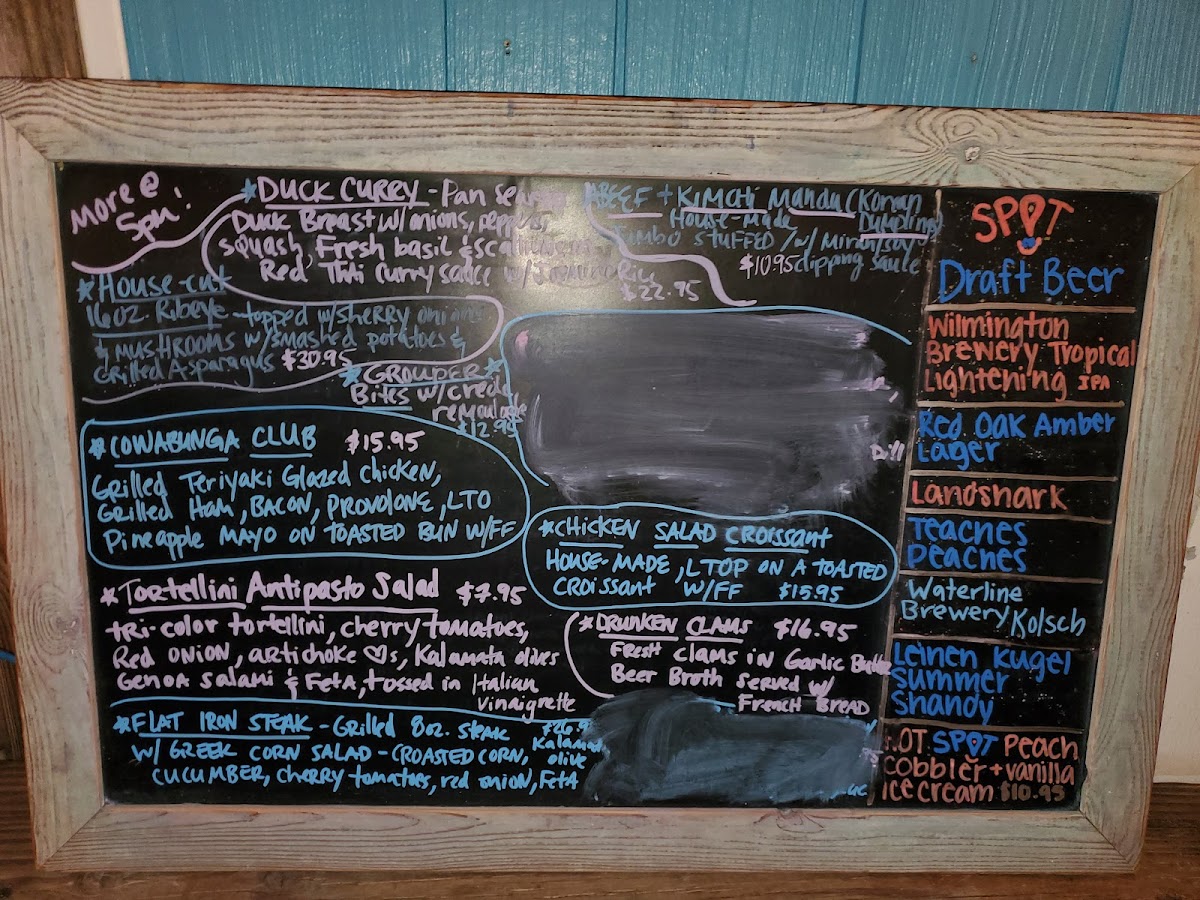 more @
5pm!
*DUCK CURRY - Pan Seared
Duck Breast w/ onions, peppers,
squash, Fresh basil & scallions in
Red Thai Curry sauce w/ Jasmine Rice
$22.95
BEEF + KIMCHI Mandu (Korean
House-Made Dumpling)
Jumbo STUFFED /w/ Mirin/soy
$10.95 dipping sauce
*House-cut
16oz. Ribeye - topped w/sherry onions
& MUSHROOMS w/smashed potatoes &
Grilled Asparagus $30.95
*GROUPER*
Bites w/ creole
remoulade
$12.95
*COWABUNGA CLUB $15.95
Grilled Teriyaki Glazed Chicken,
Grilled Ham, BACON, PROVOLONE, LTO
Pineapple MAYO ON TOASTED BUN W/FF
Dill
*CHICKEN SALAD CROISSANT
HOUSE-MADE, LTOP ON A TOASTED
CROISSANT W/FF $15.95
*Tortellini Antipasto Salad $7.95
tri-color tortellini, cherry tomatoes,
Red ONION, artichoke ♡s, Kalamata olives
Genoa Salami & FETA, tossed in Italian
vinaigrette
*DRUNKEN CLAMS $16.95
FRESH clams in Garlic Butter
Beer Broth served w/
FRENCH BREAD
*FLAT IRON STEAK - Grilled 8oz. steak
W/ GREEK CORN SALAD - (ROASTED CORN, Kalamata olive
CUCUMBER, cherry tomatoes, red onion, FETA
SPOT
Draft Beer
Wilmington
Brewery Tropical
Lightening IPA
Red Oak Amber
Lager
Landshark
Teaches
Peaches
Waterline
Brewery Kolsch
Leinen Kugel
Summer
Shandy
HOT SPOT Peach
Cobbler + vanilla
ice cream $10.95